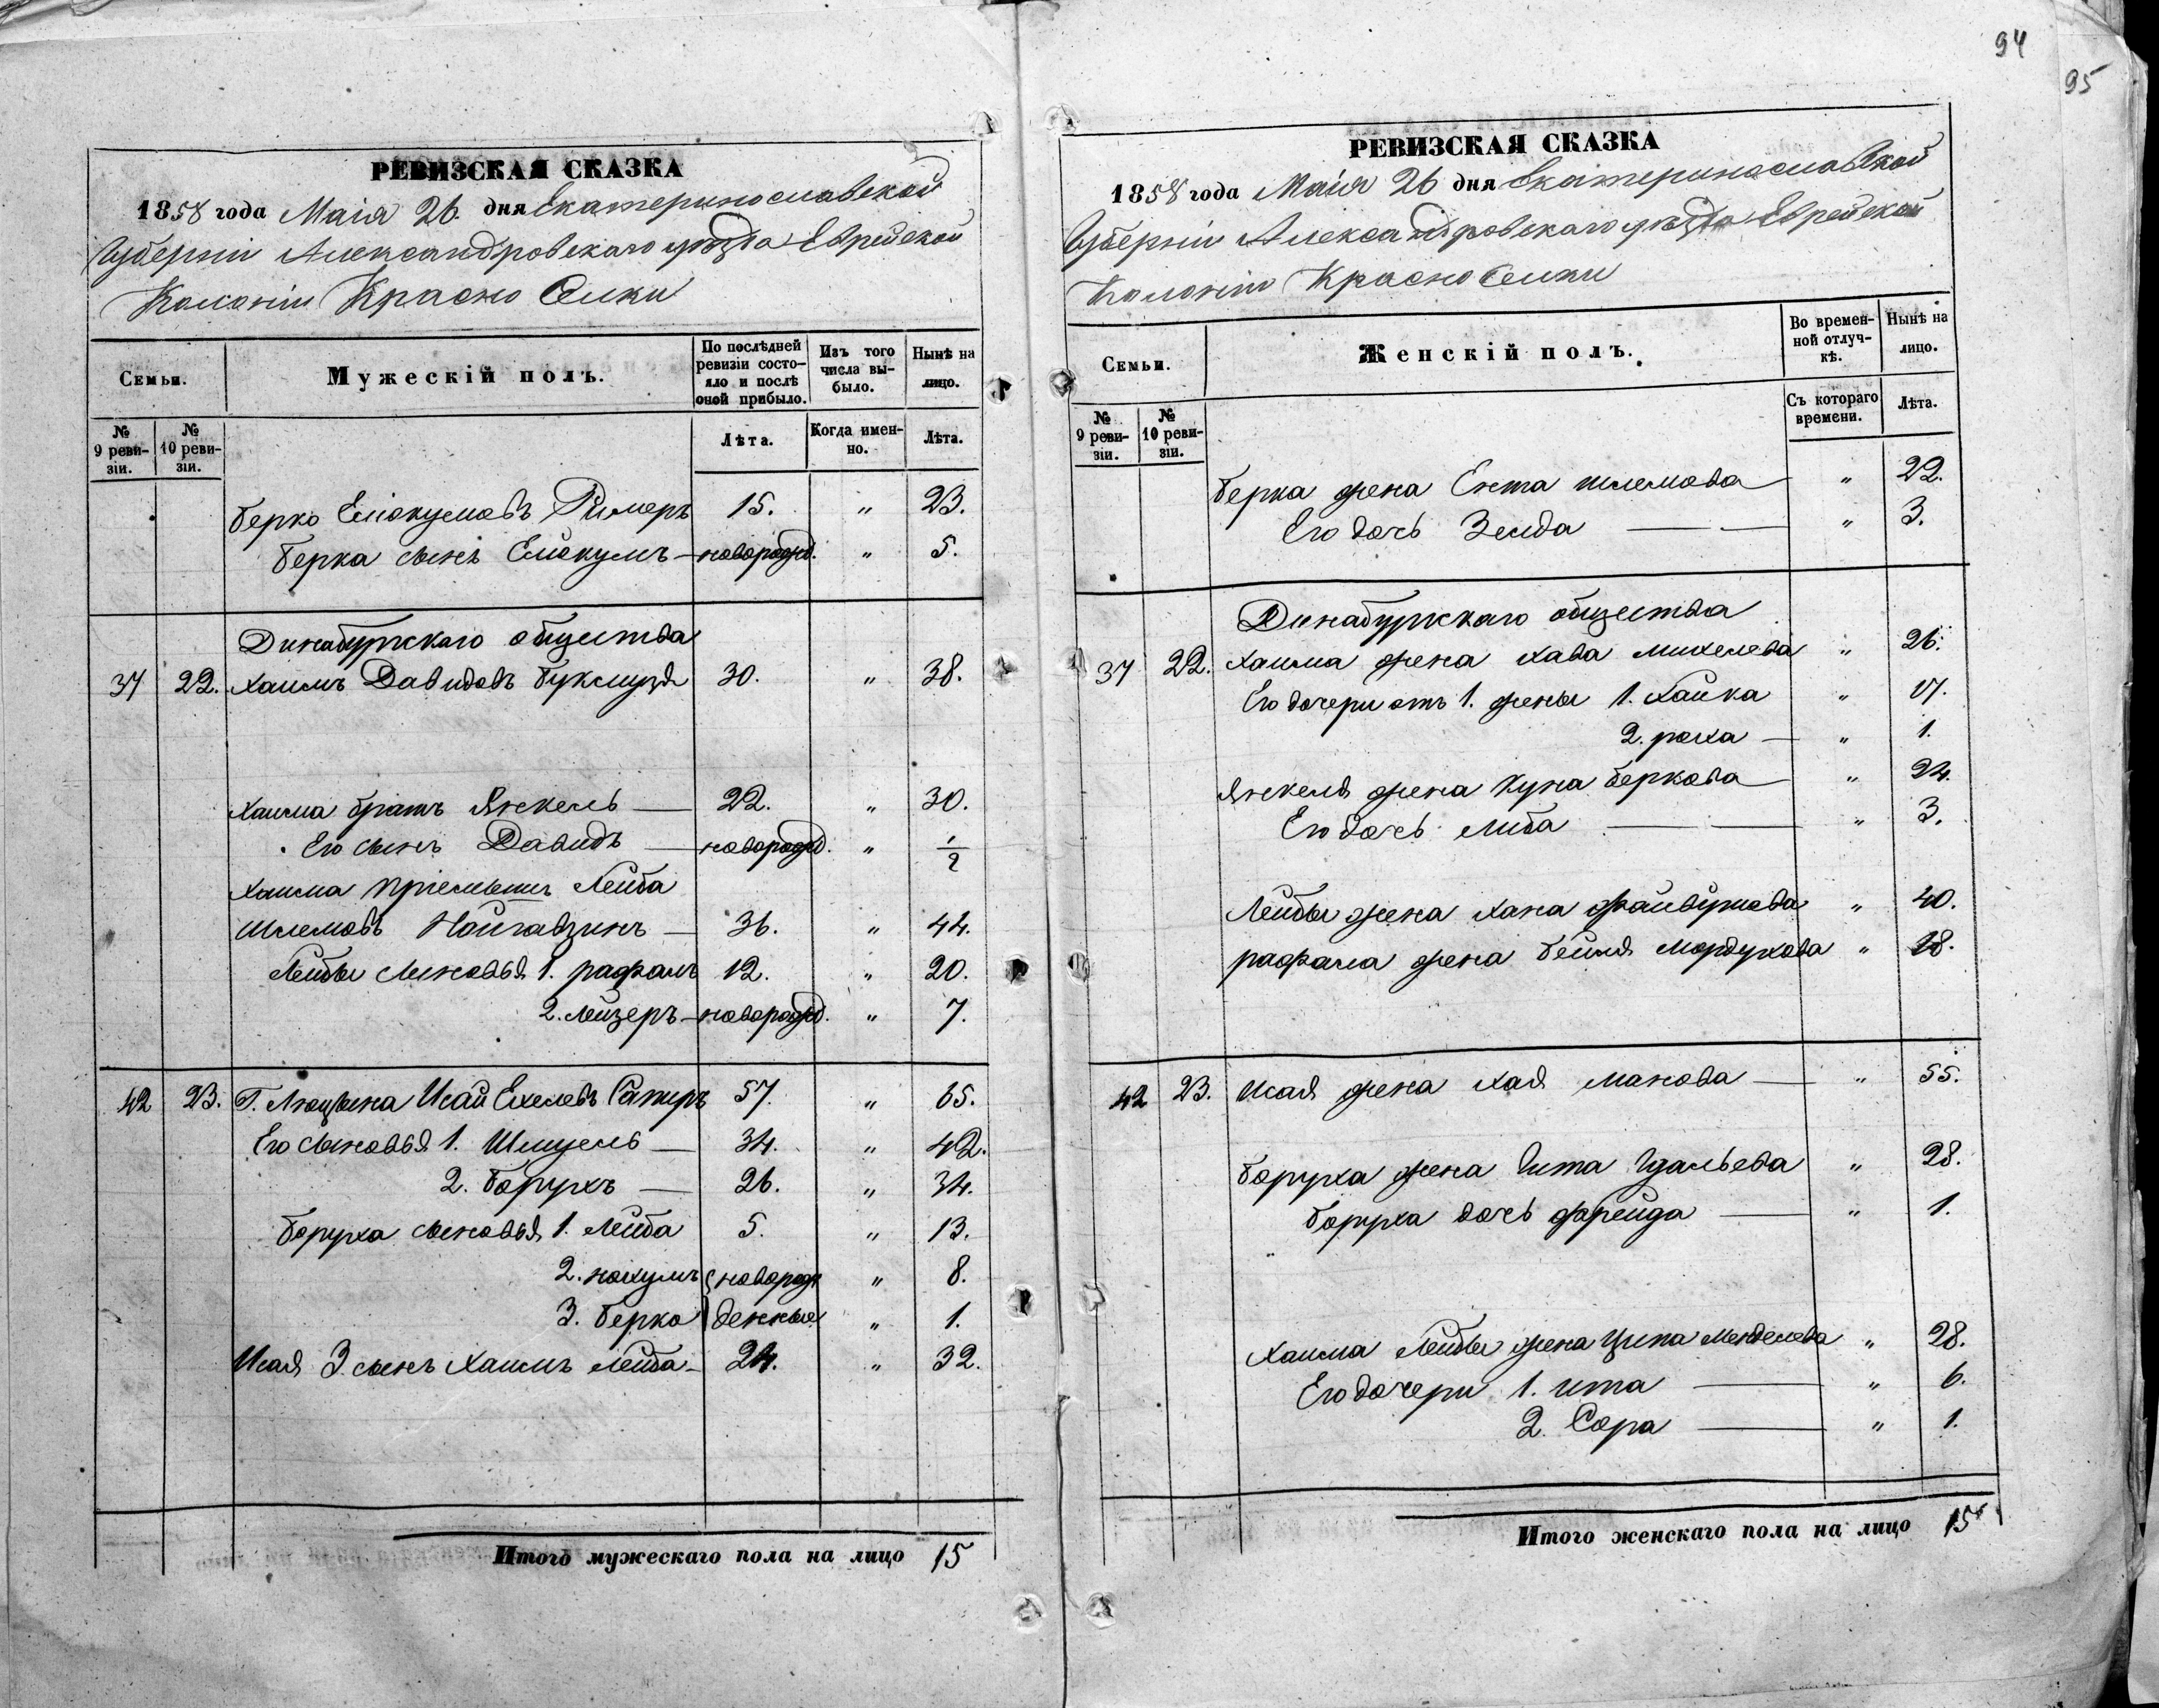 94
95
РЕВИЗСКАЯ СКАЗКА
1858 года Маія 26. дня Екатеринославской
Губерніи Александровскаго уѣзда Еврейской
Колоніи Красно Селки
Семьи.
Мужескій полъ.
По послѣдней ревизіи состояло и послѣ оной прибыло.
Изъ того числа выбыло.
Нынѣ на лицо.
№ 9 ревизіи.
№ 10 ревизіи.
Лѣта.
Когда именно.
Лѣта.
Берко Еліокумовъ Ример 15. " 23.
Берка сынъ Еліокумъ — новорожд. " 5.
Динабургскаго общества
37 22. Хаимъ Давидовъ Букмуздя 30. " 38.
Хаима братъ Янкель — 22. " 30.
Его сынъ Давидъ — новорожд. " 1/2
Хаима пріемышъ Лейба
Шлемовъ — 36. " 44.
Лейбы сыновья 1. рафаль 12. " 20.
2. Лейзеръ — новорожд. " 7.
42 23. Г. Люцына Исай Ехелевъ Сапиръ 57. " 65.
Его сыновья 1. Шмуель — 34. " 42.
2. Борухъ — 26. " 34.
Боруха сыновья 1. Лейба 5. " 13.
2. нохумъ новорож " 8.
3. берко денные " 1.
Исая 3. сынъ Хаимъ Лейба — 24. " 32.
Итого мужескаго пола на лицо 15
РЕВИЗСКАЯ СКАЗКА
1858 года Маія 26 дня Екатеринославской
Губерніи Александровскаго уѣзда Еврейской
Колоніи Красно Селки
Семьи.
Женскій полъ.
Во временной отлучкѣ.
Нынѣ на лицо.
№ 9 ревизіи.
№ 10 ревизіи.
Съ котораго времени.
Лѣта.
Берка жена Ента шлемова — " 22.
Его дочь Зелда — — " 3.
Динабургскаго общества
37 22. Хаима жена хава михелева " 26.
Его дочери отъ 1. жены 1. Хайка " 17.
2. роха — " 1.
Янкеля жена Куна беркова — " 24.
Его дочь Либа — — " 3.
Лейбы жена хана файвушова " 40.
рафала жена бейля Мордухова " 18.
42 23. Исая жена хая манова — " 55.
боруха жена Гита Гдальева " 28.
боруха дочь фрейда — " 1.
Хаима Лейбы жена Ципа Менделева " 28.
Его дочери 1. ита — " 6.
2. Сора — " 1.
Итого женскаго пола на лицо 15